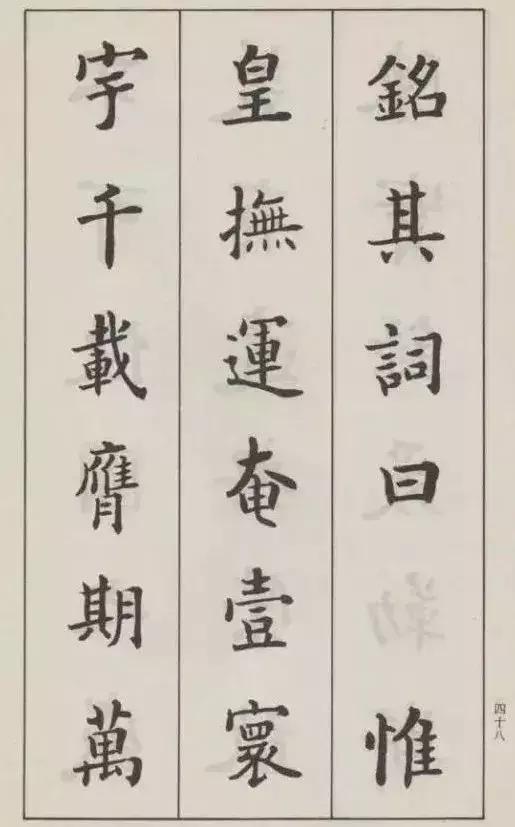 銘其詞曰惟
皇撫運奄壹寰
宇千載膺期萬
四十八